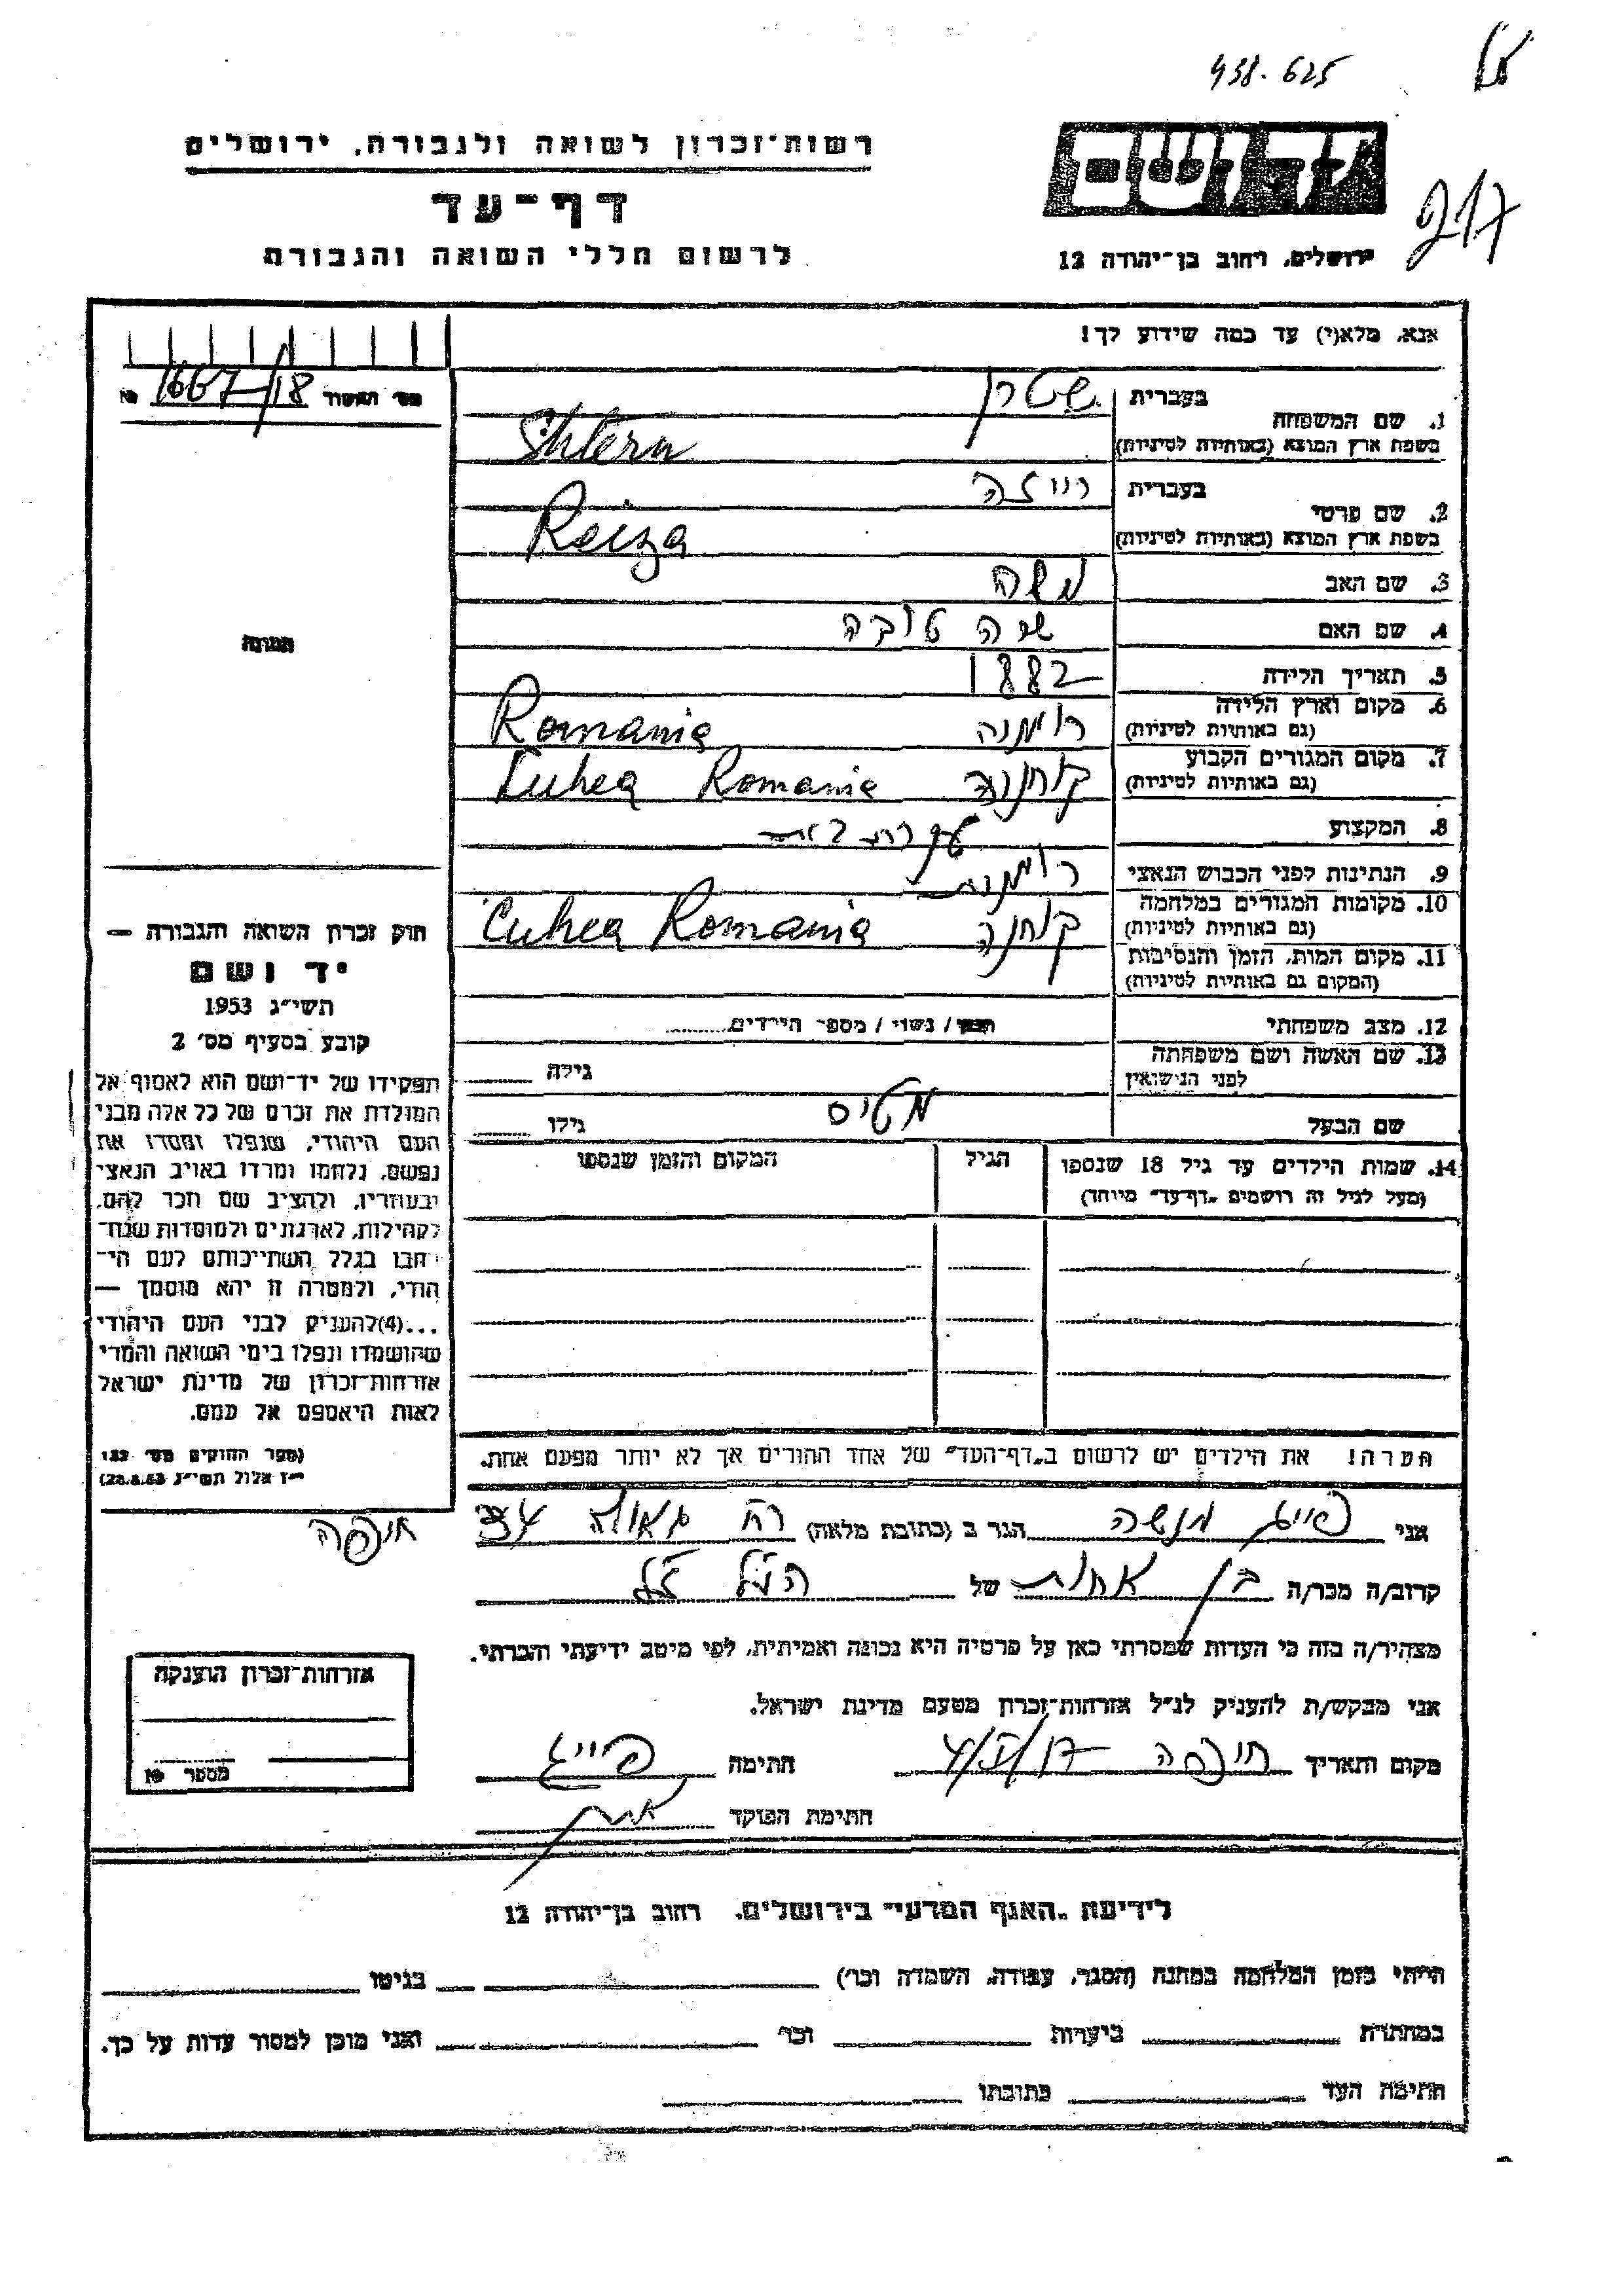 438.625
217
רשות־זכרון לשואה ולגבורה, ירושלים
דף־עד
לרשום חללי השואה והגבורה
יד ושם
ירושלים, רחוב בן־יהודה 12
אנא, מלא(י) עד כמה שידוע לך!
1667/18
1. שם המשפחה בעברית שטרן
בשפת ארץ המוצא (באותיות לטיניות) Shtern
2. שם פרטי בעברית רויזה
בשפת ארץ המוצא (באותיות לטיניות) Roiza
3. שם האב משה
4. שם האם שרה טובה
5. תאריך הלידה 1882
6. מקום וארץ הלידה (גם באותיות לטיניות) רומנה Romania
7. מקום המגורים הקבוע (גם באותיות לטיניות) קוחנה Cuhea Romania
8. המקצוע עקרת בית
9. הנתינות לפני הכבוש הנאצי רומנית
10. מקומות המגורים במלחמה (גם באותיות לטיניות) קוחנה Cuhea Romania
11. מקום המות, הזמן והנסיבות (המקום גם באותיות לטיניות)
12. מצב משפחתי / נשוי / מספר הילדים
13. שם האשה ושם משפחתה לפני הנישואין גילה
שם הבעל מטיס גילו
14. שמות הילדים עד גיל 18 שנספו הגיל המקום והזמן שנספו
(מעל לגיל זה רושמים „דף־עד” מיוחד)
הערה! את הילדים יש לרשום ב„דף־העד” של אחד ההורים אך לא יותר מפעם אחת.
תמונה
חוק זכרון השואה והגבורה —
יד ושם
תשי״ג 1953
קובע בסעיף מס׳ 2
תפקידו של יד־ושם הוא לאסוף אל
המולדת את זכרם של כל אלה מבני
העם היהודי, שנפלו ומסרו את
נפשם, נלחמו ומרדו באויב הנאצי
ובעוזריו, ולהציב שם וזכר להם,
לקהילות, לארגונים ולמוסדות שנח־
רבו בגלל השתייכותם לעם הי־
הודי, ולמטרה זו יהא מוסמך —
...(4)להעניק לבני העם היהודי
שהושמדו ונפלו בימי השואה והמרי
אזרחות־זכרון של מדינת ישראל
לאות היאספם אל עמם.
(ספר החוקים מס׳ 132
י״ז אלול תשי״ג 28.8.53)
אני פייג מנשה הגר ב (כתובת מלאה) רח גאולה 34 חיפה
קרוב/ה מכר/ה בן אחות של הנ״ל ז״ל
מצהיר/ה בזה כי העדות שמסרתי כאן על פרטיה היא נכונה ואמיתית, לפי מיטב ידיעתי והכרתי.
אני מבקש/ת להעניק לנ״ל אזרחות־זכרון מטעם מדינת ישראל.
מקום ותאריך חיפה חתימה פייג
חתימת הפוקד
אזרחות־זכרון הוענקה
מספר №
לידיעת „האגף המדעי” בירושלים, רחוב בן־יהודה 12
הייתי בזמן המלחמה במחנה (הסגר, עבודה, השמדה וכו׳) בגיטו
במחתרת ביערות וכו׳ ואני מוכן למסור עדות על כך.
חתימת העד כתובתו